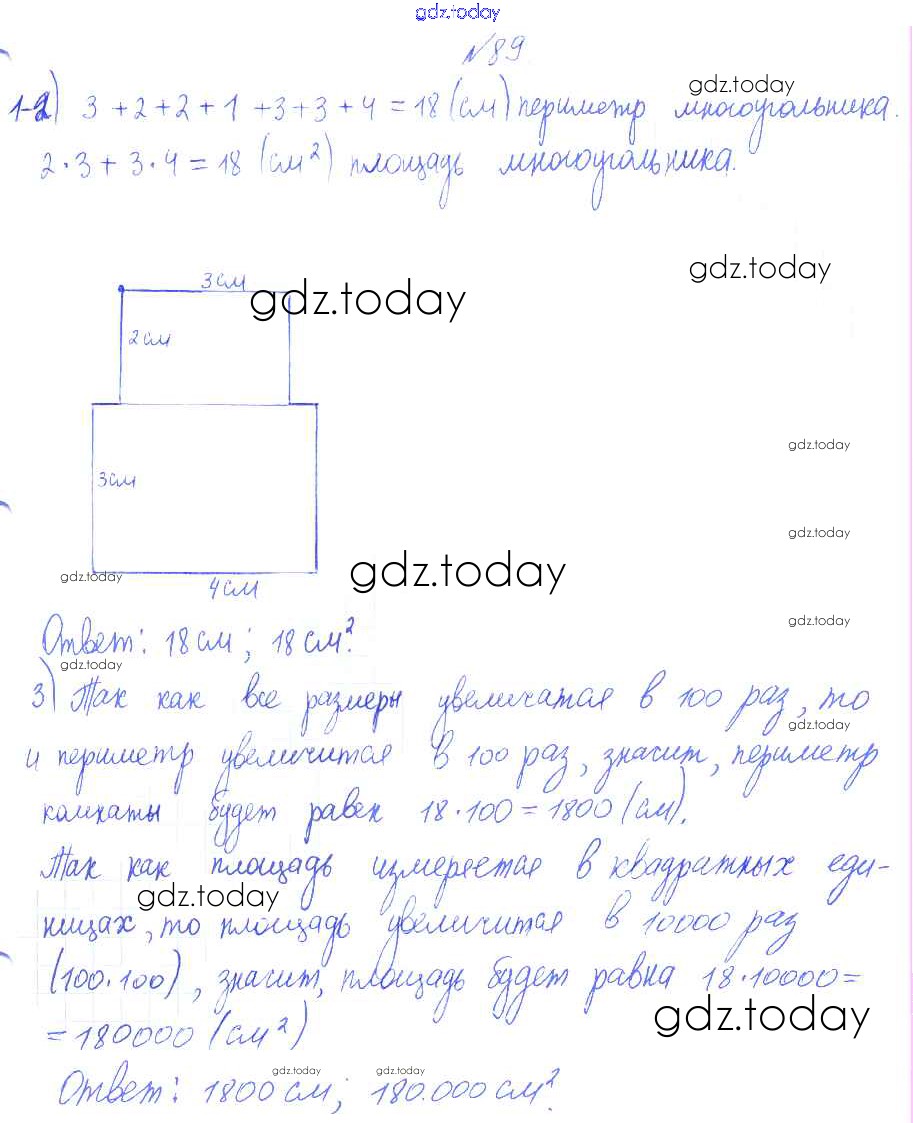 gdz.today
№89
gdz.today
1-2) 3 + 2 + 2 + 1 + 3 + 3 + 4 = 18 (см) периметр многоугольника.
2·3 + 3·4 = 18 (см²) площадь многоугольника.
gdz.today
3см
gdz.today
2см
gdz.today
3см
gdz.today
gdz.today
gdz.today
4см
gdz.today
Ответ: 18см; 18см².
gdz.today
3) Так как все размеры увеличатся в 100 раз, то
gdz.today
и периметр увеличится в 100 раз, значит, периметр
комнаты будет равен 18·100 = 1800 (см).
Так как площадь измеряется в квадратных еди-
gdz.today
ницах, то площадь увеличится в 10000 раз
(100·100), значит, площадь будет равна 18·10000=
gdz.today
=180000 (см²)
gdz.today
gdz.today
Ответ: 1800 см; 180.000 см².